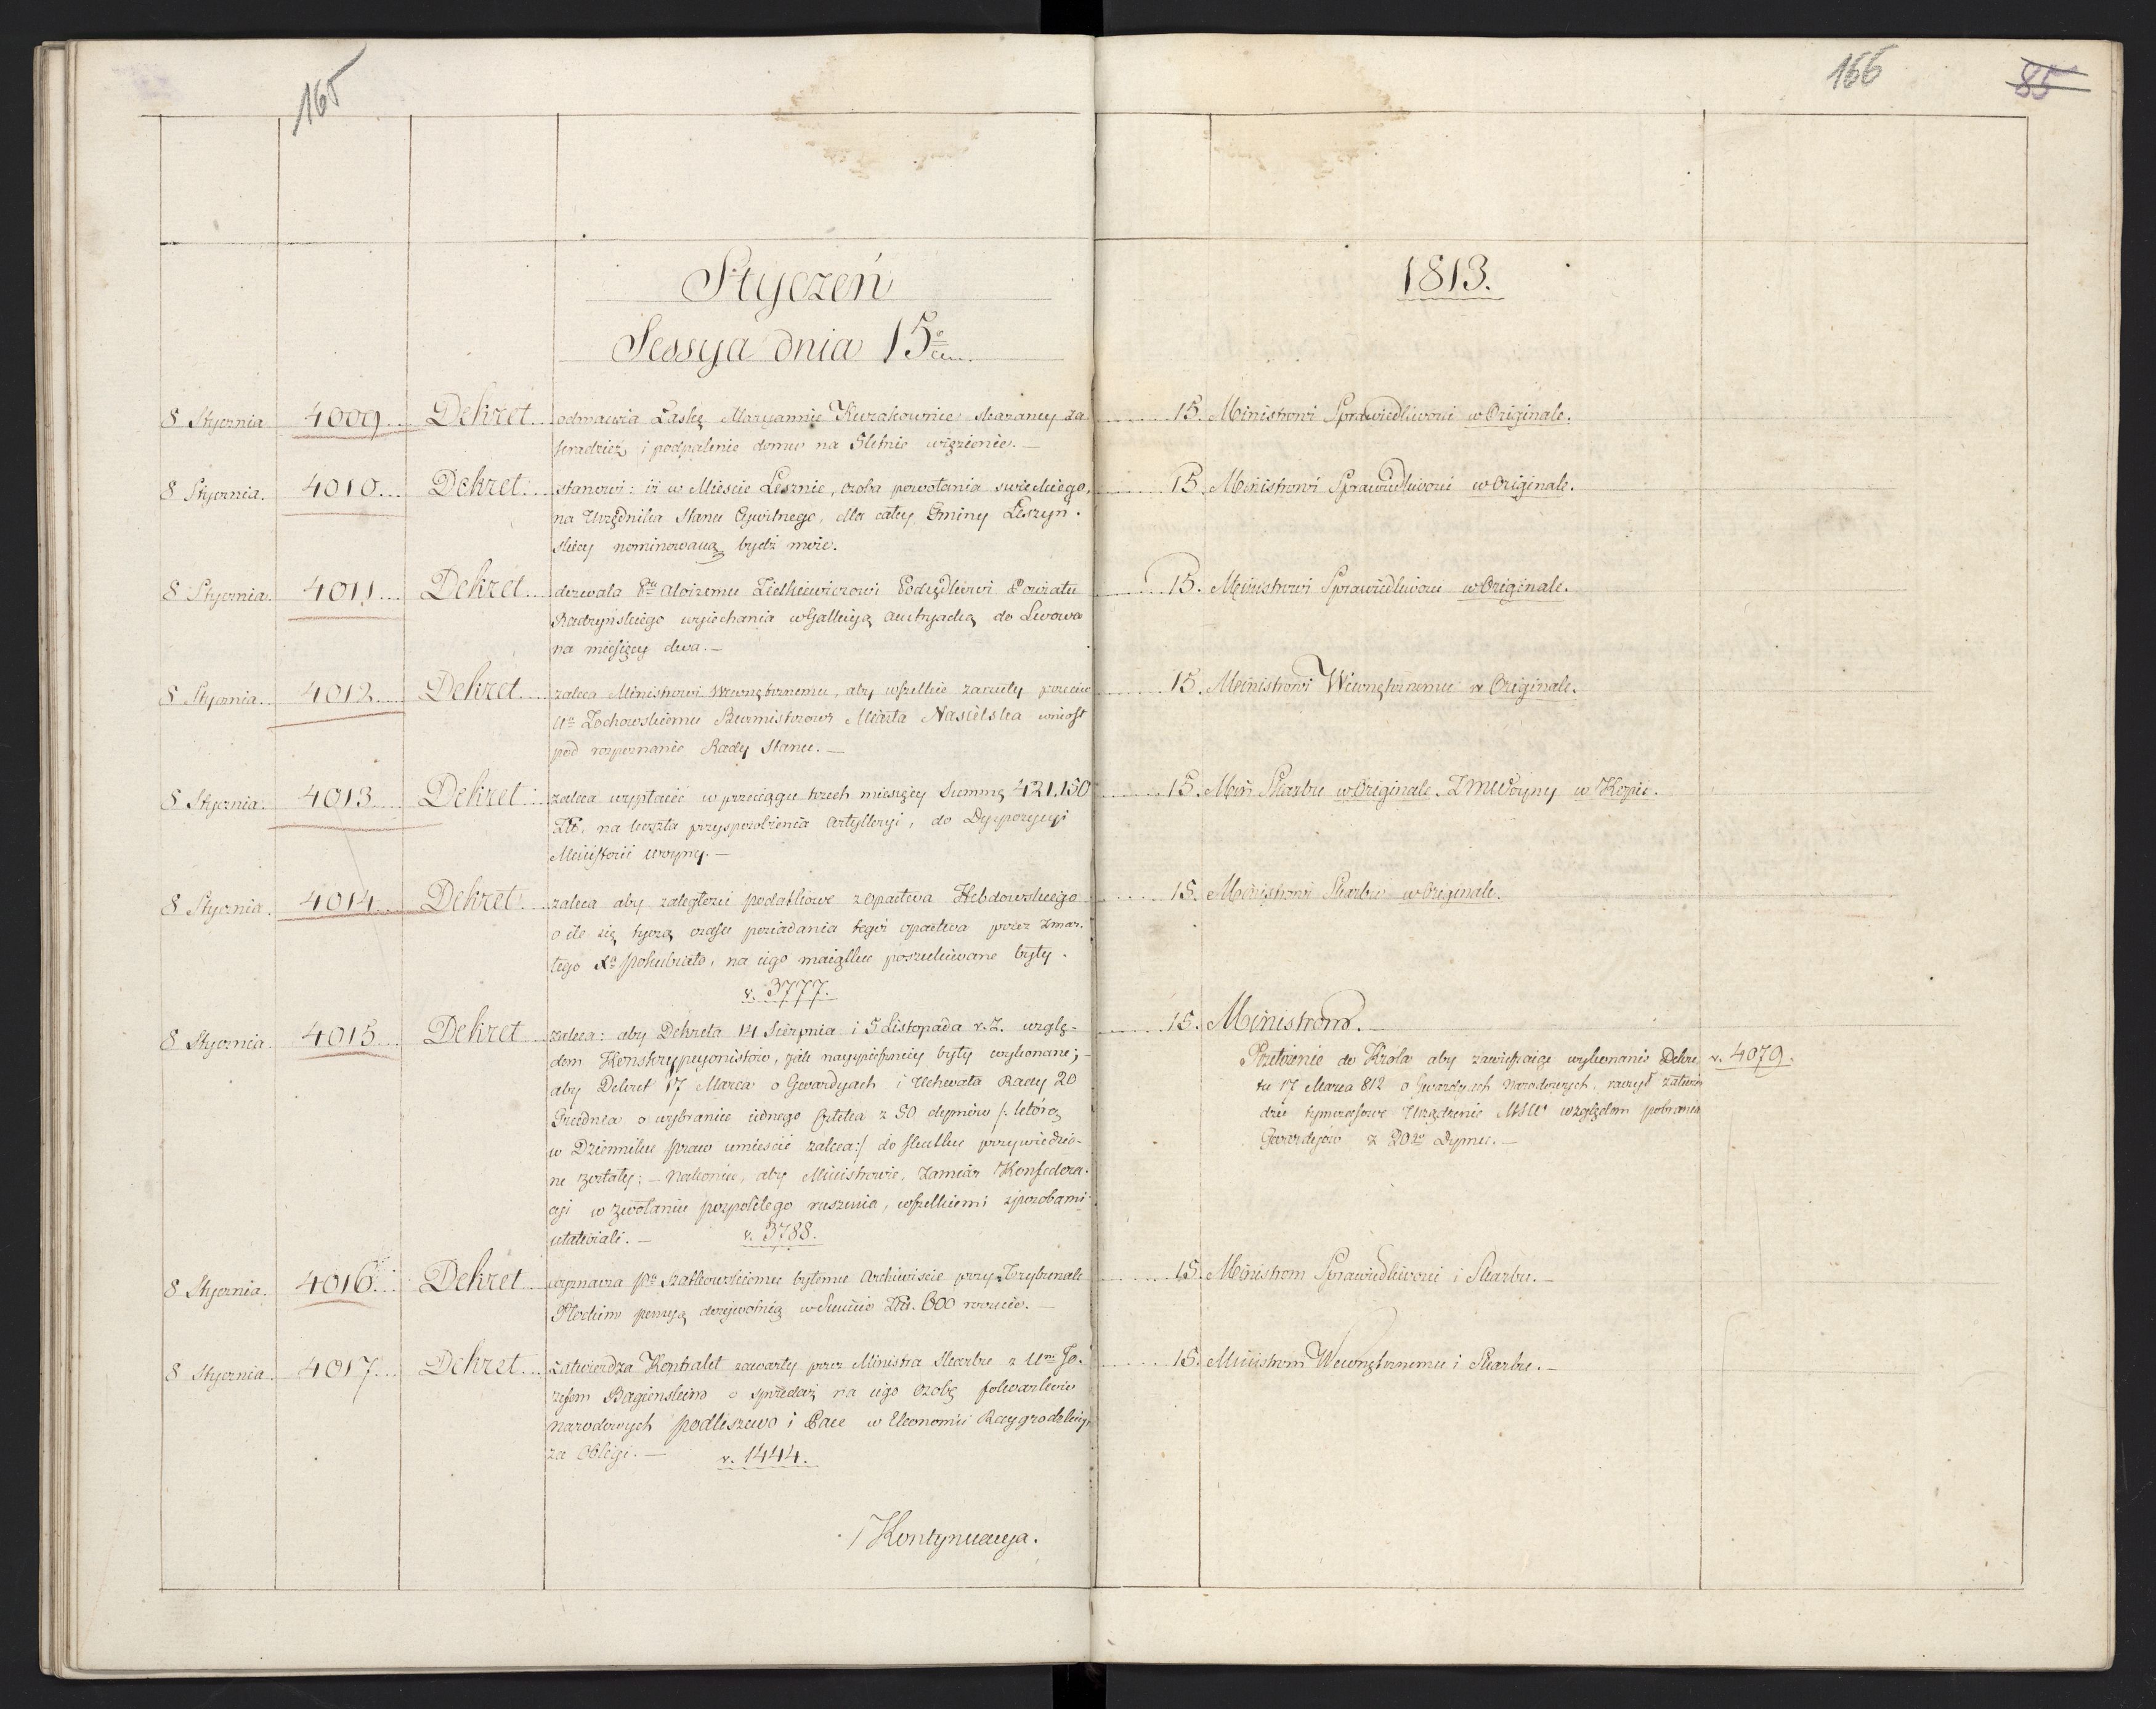 165
166
85
Styczeń
1813.
Sessya dnia 15go
8 Stycznia 4009 Dekret odmawia Łaskę Maryannie Kurakownie skazaney za
kradzież i podpalenie domu na 5letnie więzienie. —
15. Ministrowi Sprawiedliwości w Originale.
8 Stycznia. 4010 Dekret stanowi: iż w Mieście Lesznie, osoba powołania swieckiego,
na Urzędnika Stanu Cywilnego, dla całey Gminy Leszyń-
skiey nominowaną bydź może.
15. Ministrowi Sprawiedliwości w Originale.
8 Stycznia. 4011 Dekret dozwala Alojzemu Zielkiewiczowi Podsędkowi Powiatu
Radzyńskiego wyjechania w Gallicyą Austryacką do Lwowa
na miesięcy dwa. —
15. Ministrowi Sprawiedliwości w Originale.
8 Stycznia. 4012 Dekret zaleca Ministrowi Wewnętrznemu, aby wszelkie zarzuty przeciw
Ur Zochowskiemu Burmistrzowi Miasta Nasielska wniosł
pod rozpoznanie Rady Stanu. —
15. Ministrowi Wewnętrznemu w Originale.
8 Stycznia. 4013 Dekret zaleca wypłacić w przeciągu trzech miesięcy Summę 421,150
Złł. na koszta przysposobienia Artylleryi, do Dyspozycyi
Ministra woyny. —
15. Min Skarbu w Originale. Woyny w Kopii.
8 Stycznia. 4014 Dekret zaleca aby zaległości podatkowe z Opactwa Hebdowskiego
o ile się tyczą czasu posiadania tegoż opactwa przez zmar-
łego na iego maiątku poszukiwane były.
v. 3777.
15. Ministrowi Skarbu w Originale.
8 Stycznia. 4015 Dekret zaleca: aby Dekreta 14 Sierpnia i 5 Listopada r. z. wzglę-
dem Konskrypcyonistów, jak nayspieszniey były wykonane; —
aby Dekret 17 Marca o Gwardyach i Uchwała Rady 20
Grudnia o wybranie iednego Człeka z 50 dymów /: którą
w Dzienniku praw umieścić zaleca :/ do skutku przywiedzio-
ne zostały; — Nakoniec, aby Ministrowie, zamiar Konfedera-
cyi w zwołaniu pospolitego ruszenia, wszelkiemi sposobami
ułatwiali. — v. 3788.
15. Ministrom. —
Przełożenie do Króla aby zawieszaiąc wykonanie Dekre-
tu 17 Marca 812 o Gwardyach Narodowych, raczył zatwier-
dzić tymczasowe Urządzenie MSW względem pobrania
Gwardyów z 20go Dymu. —
v. 4079.
8 Stycznia. 4016 Dekret wyznacza Szatkowskiemu byłemu Archiwiście przy Trybunale
Płockim pensyą dożywotnią w Summie Złł. 600 rocznie. —
15. Ministrom Sprawiedliwości i Skarbu. —
8 Stycznia. 4017 Dekret zatwierdza Kontrakt zawarty przez Ministra Skarbu z Ur Jo-
zefem Bagienskim o sprzedaż na iego osobę folwarków
narodowych Podliszewo i Pace w Ekonomii Raygrodzkiey,
za Obligi. — v. 1444.
15. Ministrom Wewnętrznemu i Skarbu. —
/ Kontynuacya.